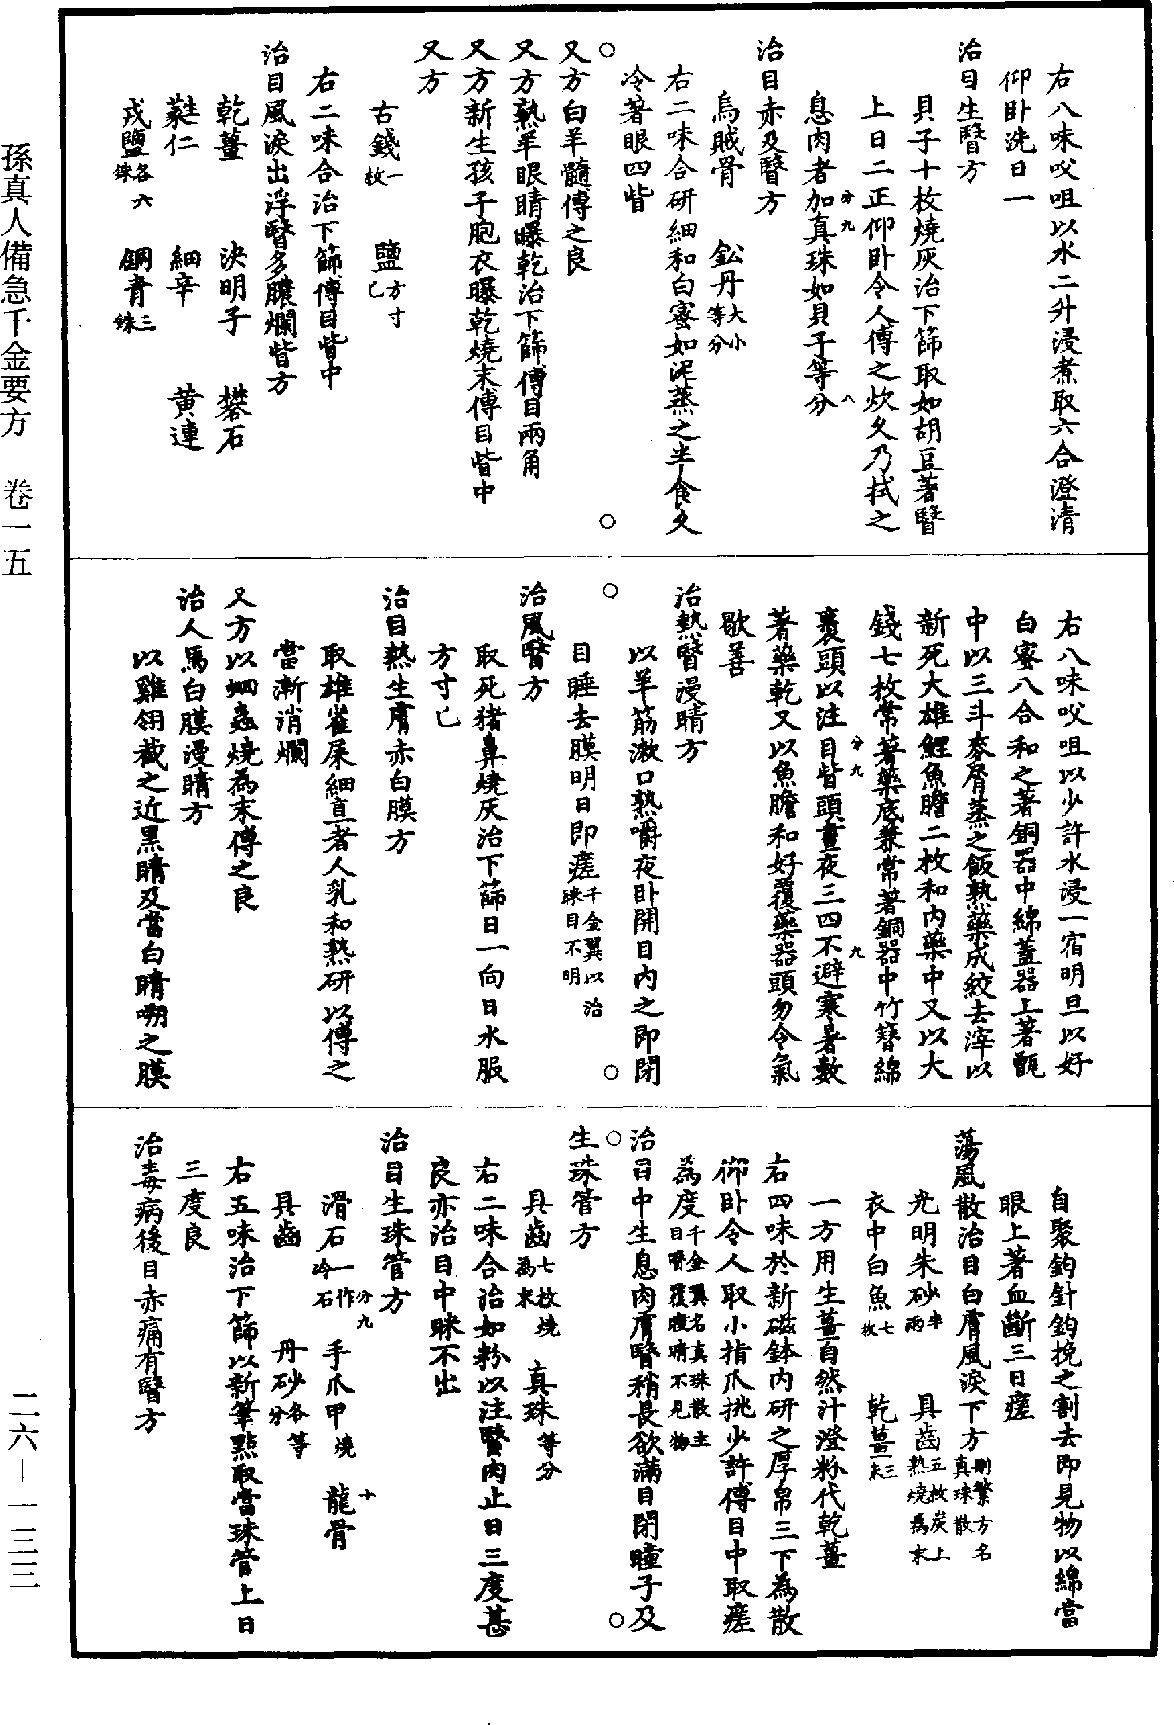 孫真人備急千金要方　卷一五
二六—一三三
右八味㕮咀以水二升浸煮取六合澄清
仰卧洗日一
治目生翳方
貝子十枚燒灰治下篩取如胡豆著翳
上日二正仰卧令人傅之炊久乃拭之
息肉者加真珠如貝子等分
治目赤及翳方
烏賊骨　鈆丹大小等分
右二味合研細和白蜜如泥蒸之半食久
冷著眼四眥
又方白羊髓傅之良
又方熟羊眼睛曝乾治下篩傅目兩角
又方新生孩子胞衣曝乾燒末傅目眥中
又方
古錢一枚　鹽方寸匕
右二味合治下篩傅目眥中
治目風淚出浮翳多膿爛眥方
乾薑　決明子　礬石
蕤仁　細辛　黃連
戎鹽各六銖　銅青三銖
右八味㕮咀以少許水浸一宿明旦以好
白蜜八合和之著銅器中綿蓋器上著甑
中以三斗麥屑蒸之飯熟藥成絞去滓以
新死大雄鯉魚膽二枚和內藥中又以大
錢七枚常著藥底兼常著銅器中竹簪綿
裹頭以注目眥頭晝夜三四不避寒暑數
著藥乾又以魚膽和好覆藥器頭勿令氣
歇善
治熱翳漫睛方
以羊筋漱口熟嚼夜卧開目內之即閉
目睡去膜明日即瘥千金翼以治眯目不明
治風翳方
取死猪鼻燒灰治下篩日一向日水服
方寸匕
治目熱生膚赤白膜方
取雄雀屎細直者人乳和熟研以傅之
當漸消爛
又方以蛔蟲燒為末傅之良
治人馬白膜漫睛方
以雞翎截之近黑睛及當白睛嗍之膜
自聚鈎針鈎挽之割去即見物以綿當
眼上著血斷三日瘥
蕩風散治目白膚風淚下方刪繁方名真珠散
光明朱砂半兩　貝齒五枚炭上熟燒為末
衣中白魚七枚　乾薑三末
一方用生薑自然汁澄粉代乾薑
右四味於新磁鉢內研之厚帛三下為散
仰卧令人取小指爪挑少許傅目中取瘥
為度千金翼名真珠散主目翳覆瞳睛不見物
治目中生息肉膚翳稍長欲滿目閉瞳子及
生珠管方
貝齒七枚燒為末　真珠等分
右二味合治如粉以注翳肉止日三度甚
良亦治目中眯不出
治目生珠管方
滑石一作冷石　手爪甲燒　龍骨
貝齒　丹砂各等分
右五味治下篩以新筆點取當珠管上日
三度良
治毒病後目赤痛有翳方